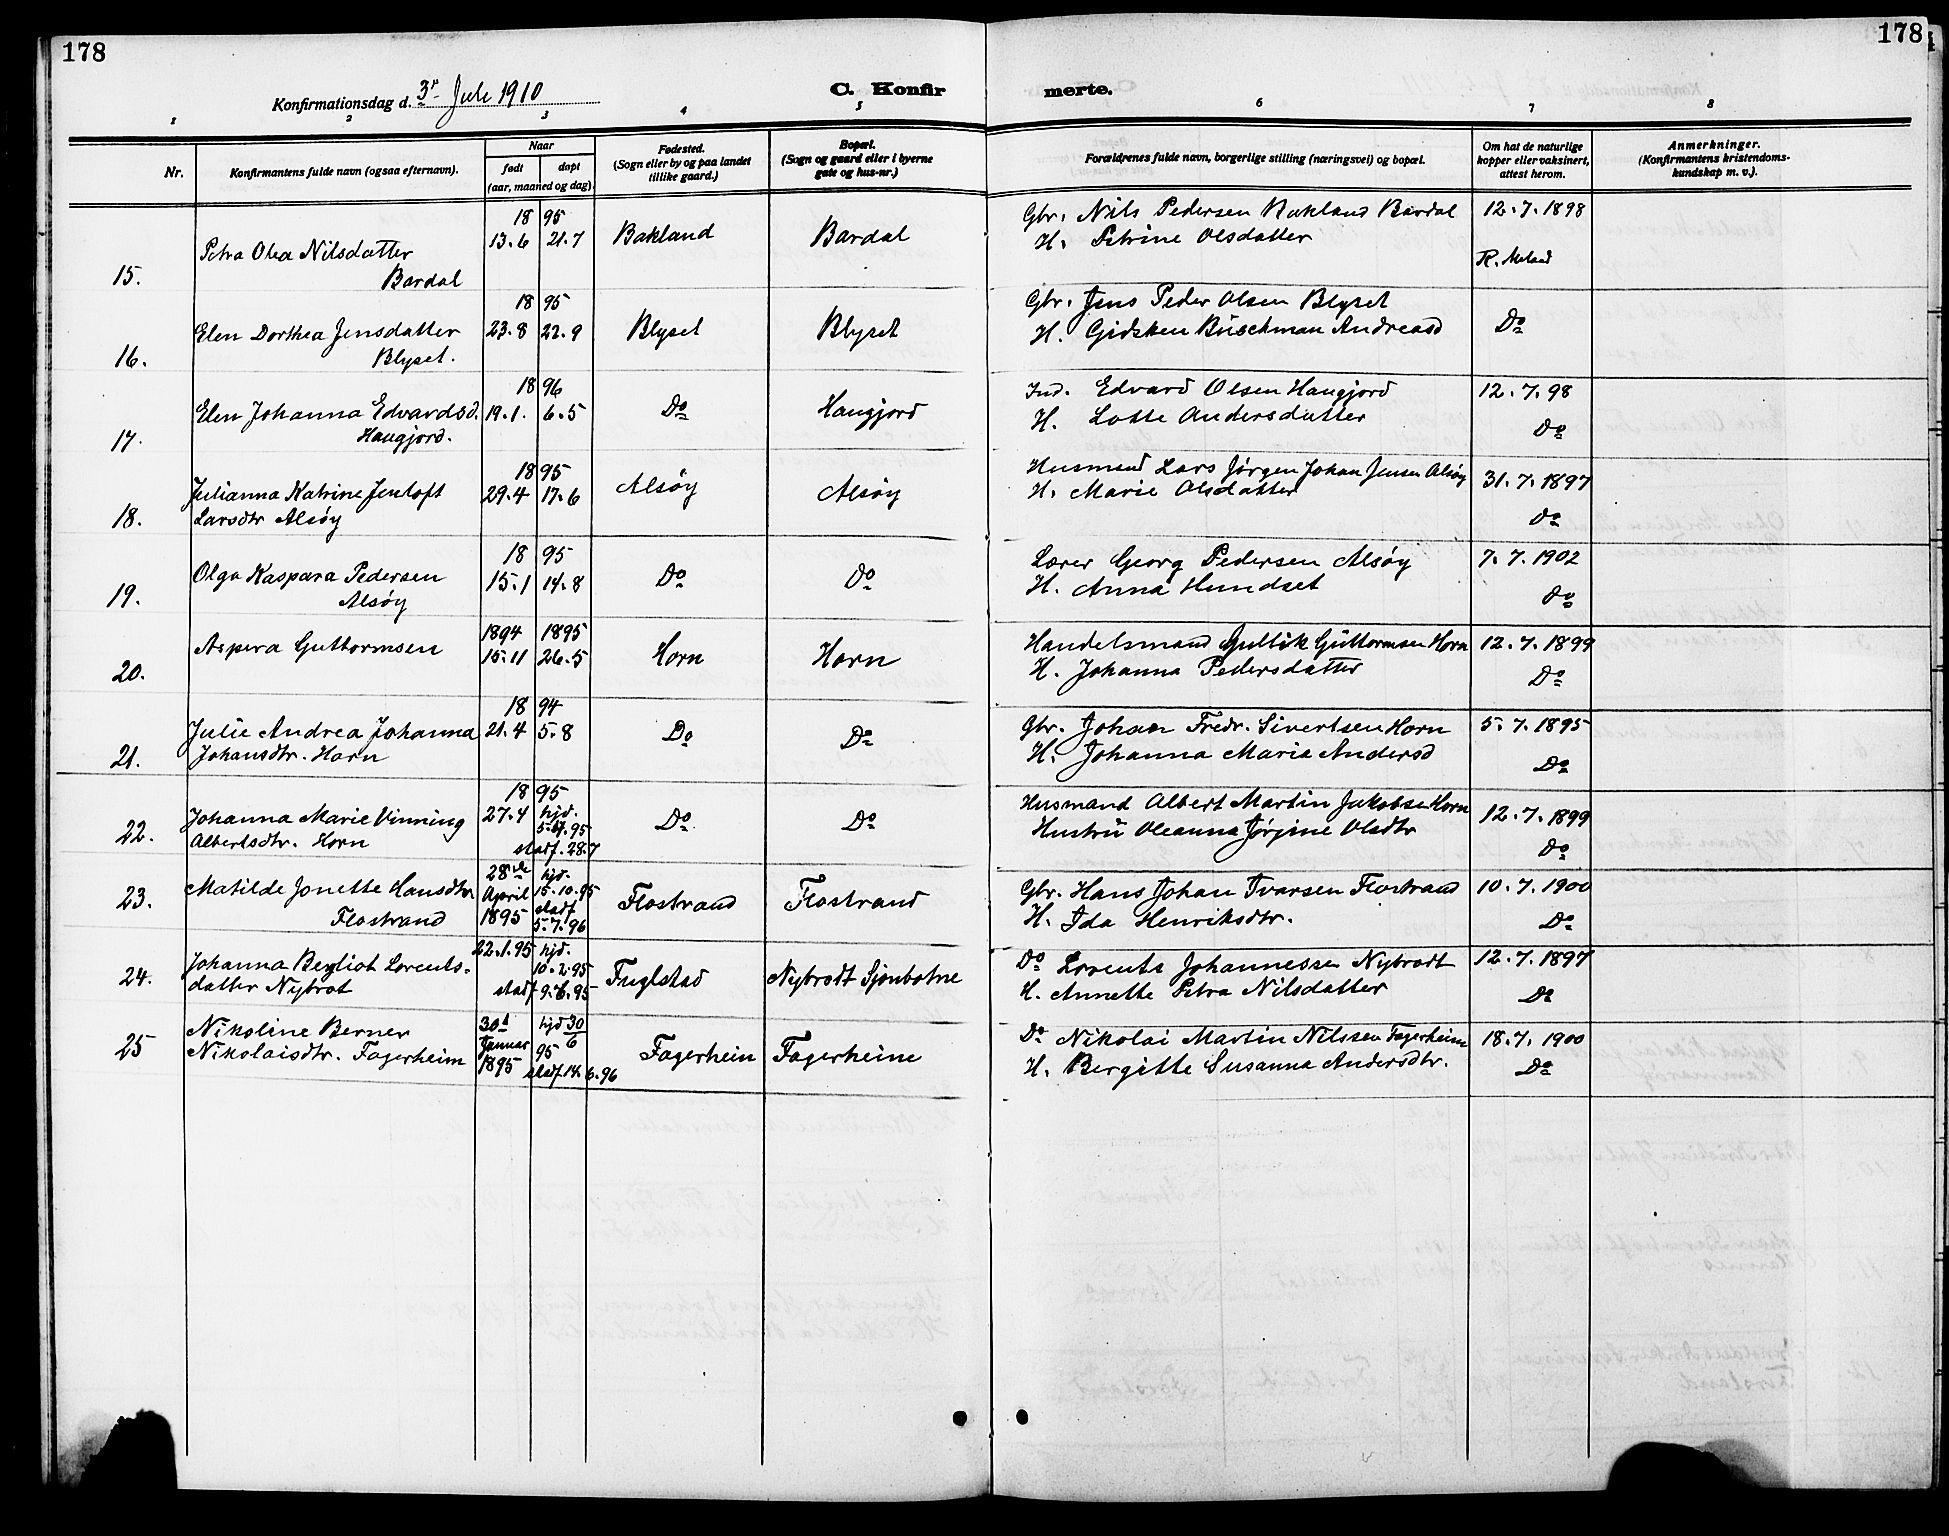 178
178
Konfirmationsdag d. 3' Juli 1910
C. Konfirmerte.
1 2 3 4 5 6 7 8
Nr.
Konfirmantens fulde navn (ogsaa efternavn).
Naar
født døpt
(aar, maaned og dag)
Fødested.
(Sogn eller by og paa landet
tillike gaard.)
Bopæl.
(Sogn og gaard eller i byerne
gate og hus-nr.)
Forældrenes fulde navn, borgerlige stilling (næringsvei) og bopæl.
Om hat de naturlige
kopper eller vaksinert,
attest herom.
Anmerkninger.
(Konfirmantens kristendoms-
kundskap m. v.).
18 95 Gbr. Nils Pedersen Bakland Bardal 12.7.1898
15. Petra Olea Nilsdatter 13.6 21.7 Bakland Bardal H. Petrine Olsdatter
Bardal
18 95 Gbr. Jens Peder Olsen Blyset
16. Elen Dorthea Jensdatter 23.8 22.9 Blyset Blyset H. Gidsken Büschman Andreasd Do
Blyset.
18 96 Ind. Edvard Olsen Haugjord 12.7.98
17. Elen Johanna Edvardsd. 19.1. 6.5 Do Haugjord H. Lotte Andersdatter Do
Haugjord.
18 95 Husmand Lars Jørgen Johan Jensen Alsøy 31.7.1897
18. Julianna Katrine Jentoft 29.4 17.6 Alsøy Alsøy H. Marie Olsdatter
Larsdtr Alsøy Do
18 95 Lærer Georg Pedersen Alsøy 7.7.1902
19. Olga Kaspara Pedersen 15.1 14.8 Do Do H. Anna Hundset
Alsøy Do
1894 1895 Handelsmand Gullik Guttormsen Horn 12.7.1899
20. Aspera Guttormsen 15.11 26.5 Horn Horn H. Johanna Pedersdatter Do
18 94
21. Julie Andrea Johanna 21.4 5.8 Do Do Gbr. Johan Fredr. Sivertsen Horn 5.7.1895
Johansdtr. Horn H. Johanna Marie Andersd Do
18 95 Husmand Albert Martin Jakobsen Horn 12.7.1899
22. Johanna Marie Vinning 27.4 hjd. Do Do Hustrü Oleanna Jørgine Olsdtr
Albertsdtr. Horn stadf. 28.7 Do
28de hjd.
23. Matilde Jonette Hansdtr April 15.10.95 Flostrand Flostrand Gbr. Hans Johan Ivarsen Flostrand 10.7.1900
Flostrand 1895 stadf 5.7.96 H. Ida Henriksdtr. Do
22.1.95 hjd.
24. Johanna Bergliot Lorents- 10.2.95 Fuglstad Nybrodt Sjonbotne Do Lorents Johannessen Nybrodt 12.7.1897
datter Nybrot stadf 9.6.95 H. Annette Petra Nilsdatter Do
25 Nikoline Berner 30 hjd 30/6 Do Nikolai Martin Nilssen Fagerheim 18.7.1900
Nikolaisdtr. Fagerheim Januar 95 Fagerheim Fagerheim H. Bergitte Susanna Andersdtr. Do
1895 stadf 14.6.96